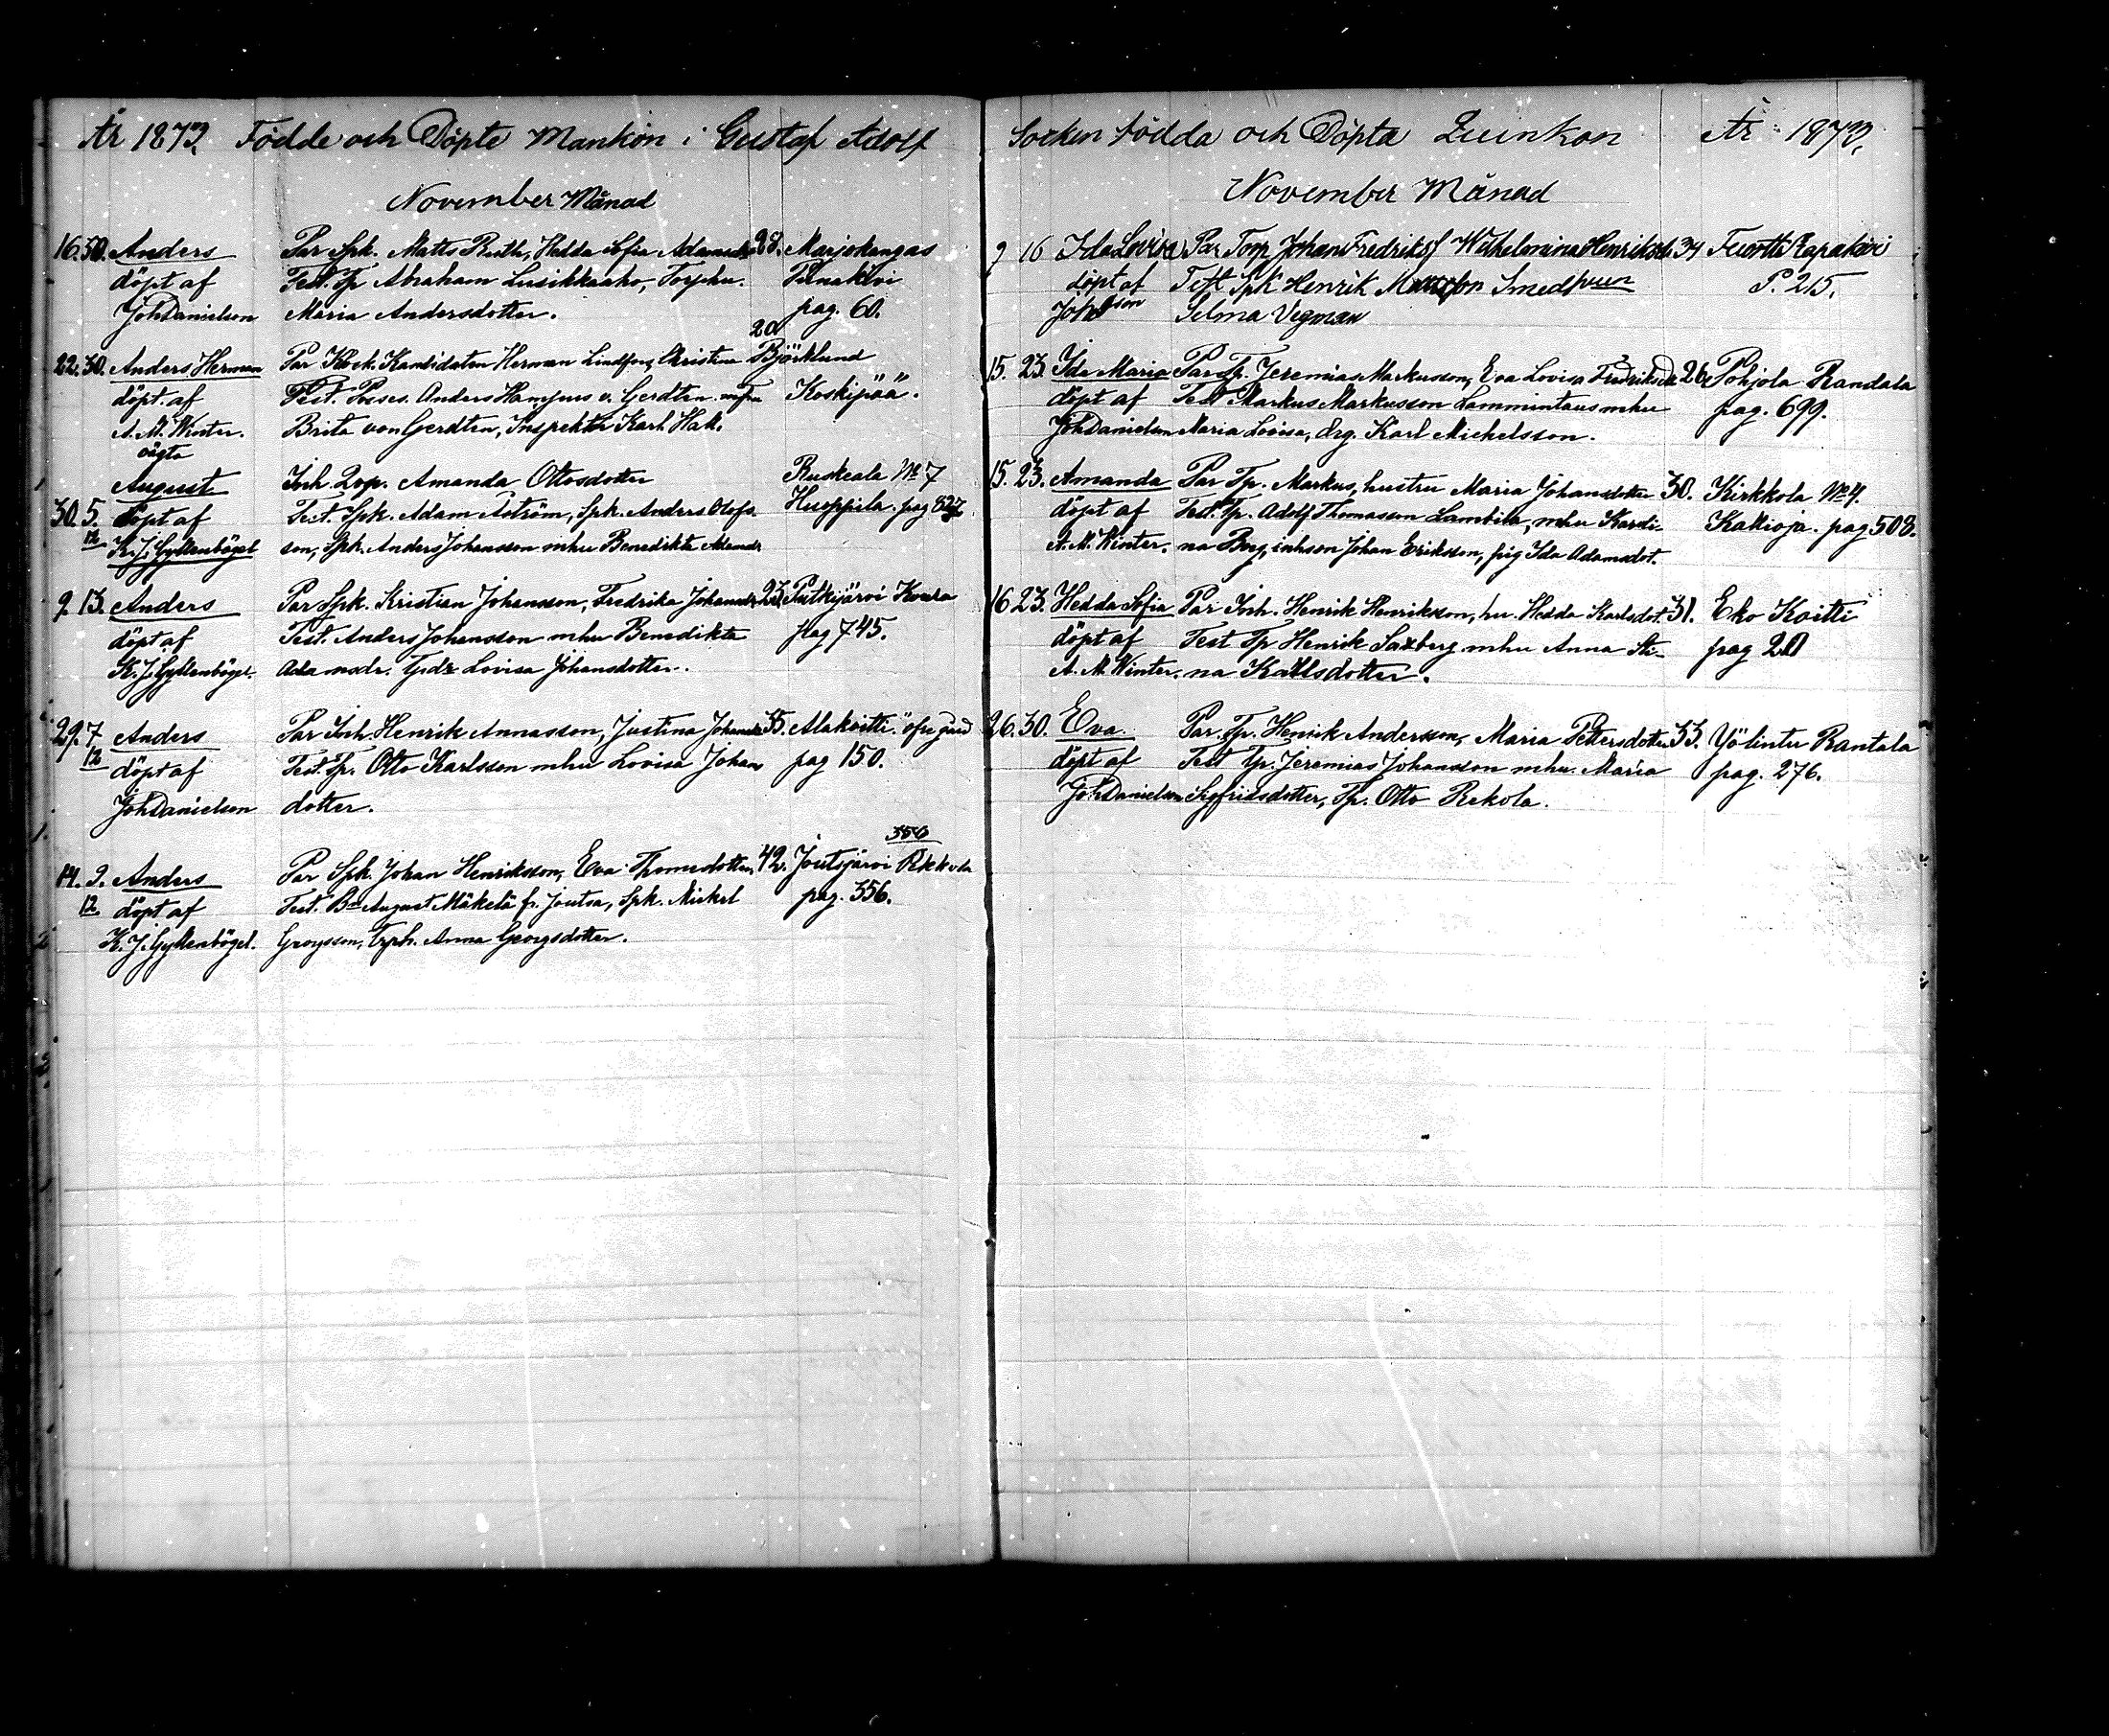 År 1873. Födde och Döpte Mankön i Gustaf Adolf
November Månad
16. 30. Anders Par Spk. Matts Ruth, Hedda Sofia Adamsdr 28. Marjokangas
döpt af Test. Tp Abraham Lusikkaaho, Torphu.
JohDanielson Maria Andersdotter. pag. 60.
20
22. 30. Anders Herman Par Kock. Kandidaten Herman Lindfors, Christina Björklund
döpt af Test. Posses. Anders Hampus v. Gerdten Koskipää.
A. M. Winter. Brita von Gerdten, Inspektor Karl Hak.
oägta
August Inh. Amanda Ottosdotter Ruskeala No 7
30. 5. döpt af Test. Spk. Adam Åström, Spk. Anders Olofs- Hueppila. pag 827
12 K. J. Gyllenbögel son, Spk. Anders Johansson mhu Benedikta Adamdr
9. 13. Anders Par Spk. Kristian Johansson, Fredrika Johansdr 23. Putkijärvi Koula
döpt af Test. Anders Johansson mhu Benedikta pag 745.
K. J. Gyllenbögel. Adamsdr. Lovisa Johansdotter.
29. 7 Anders Par Inh. Henrik Annasson, Justina Johansdr 35. Alakoitti
12 döpt af Test. Tp. Otto Karlsson mhu Lovisa Johans pag 150.
JohDanielson dotter.
356
14. 9. Anders Par Spk. Johan Henriksson, Eva Thomasdotter, 42. Joutsjärvi Rekkola
12 döpt af Test. Bs August Mäkelä fr. Joutsa, Spk. Mickel pag. 356.
K. J. Gyllenbögel. Georgsson, Anna Georgsdotter.
Socken födda och Döpta Quinkön År 1873.
November Månad
9 16 Ida Lovisa Par Torp Johan Fredriks Wilhelmina Henriksdr 34
döpt af Test Spk Henrik P. 215.
Joh Selma Vegman
15. 23. Ida Maria Par Tp. Jeremias Markusson, Eva Lovisa Fredriksdr 26. Pohjola Randala
döpt af Test Markus Markusson Lammintaus mhu pag. 699.
JohDanielson Maria Lovisa, drg. Karl Michelsson.
15. 23. Amanda Par Tp. Markus, hustru Maria Johansdotter 30. Kirkkola No 4.
döpt af Test. Tp. Adolf Thomasson Lambila, mhu Karoli- Kakioja. pag 508.
A. M. Winter. na Berg, inhson Johan Eriksson, pig Ida Adamsdot.
16 23. Hedda Sofia Par Inh. Henrik Henriksson, hu. Hedda Karlsdot. 31. Eko Koitti
döpt af Test Tp Henrik Saxberg mhu Anna Sti- pag 20
A. M. Winter. na Karlsdotter.
26. 30. Eva Par. Tp. Henrik Andersson, Maria Pettersdotter 33. Yölintu Rantala
döpt af Test Tp. Jeremias Johansson mhu. Maria pag. 276.
JohDanielson Sigfridsdotter, Tp. Otto Rekola.